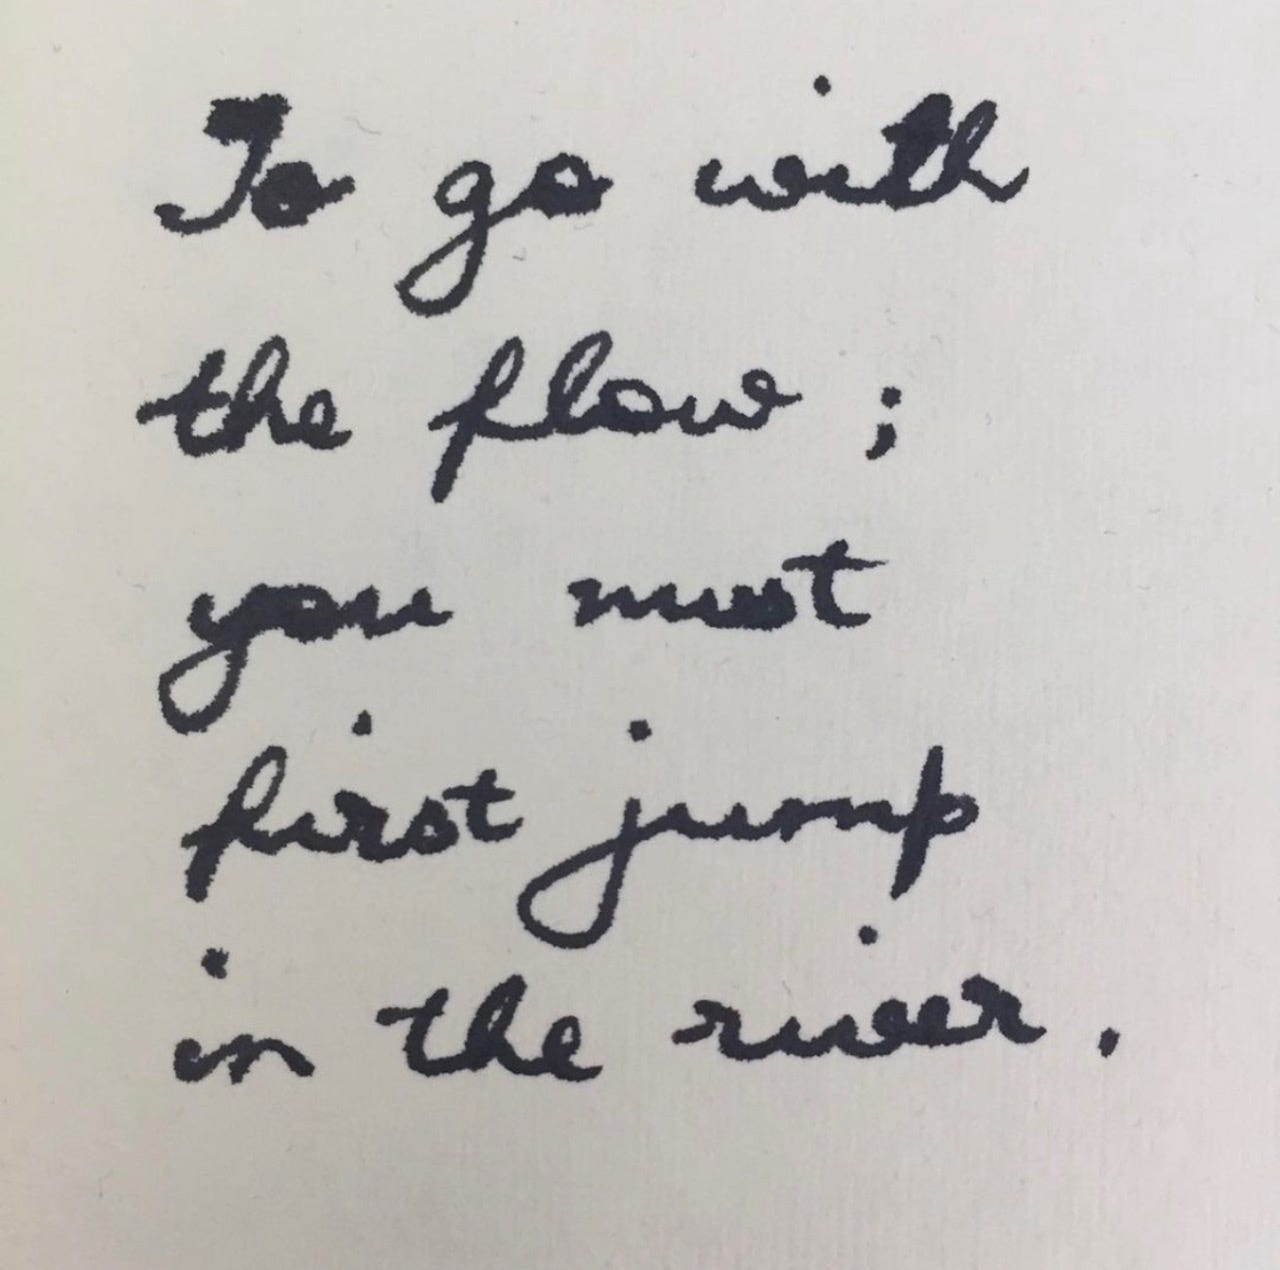 To go with
the flow ;
you must
first jump
in the river .